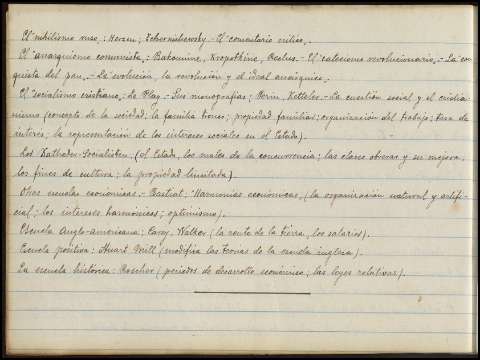 El nihilismo ruso,: Herzen; Tchernichewsky.- El comentario crítico,.
El anarquismo comunista,: Bakounine, Kropotkine, Reclus.- El catecismo revolucionario,.- La con-
quista del pan,.- La evolución, la revolución y el ideal anárquico,.
El socialismo cristiano,: Le Play.- Sus monografías; Perin, Ketteler.- La cuestión social y el cristia-
nismo (concepto de la sociedad, la familia troncal; propiedad familiar; organización del trabajo; tasa de
interés; la representación de los intereses sociales en el Estado).
Los Katheder-Socialisten, (el Estado, los males de la concurrencia; las clases obreras y su mejora,
los fines de cultura; la propiedad limitada).
Otras escuelas económicas.- Bastiat: "Harmonías económicas, (la organización natural y artifi-
cial; los intereses harmónicos; optimismo).
Escuela Anglo-americana; Carey, Walker (la renta de la tierra, los salarios).
Escuela positiva: Stuart Mill (modifica las teorías de la escuela inglesa).
La escuela histórica: Roscher (periodos de desarrollo económico; las leyes relativas).